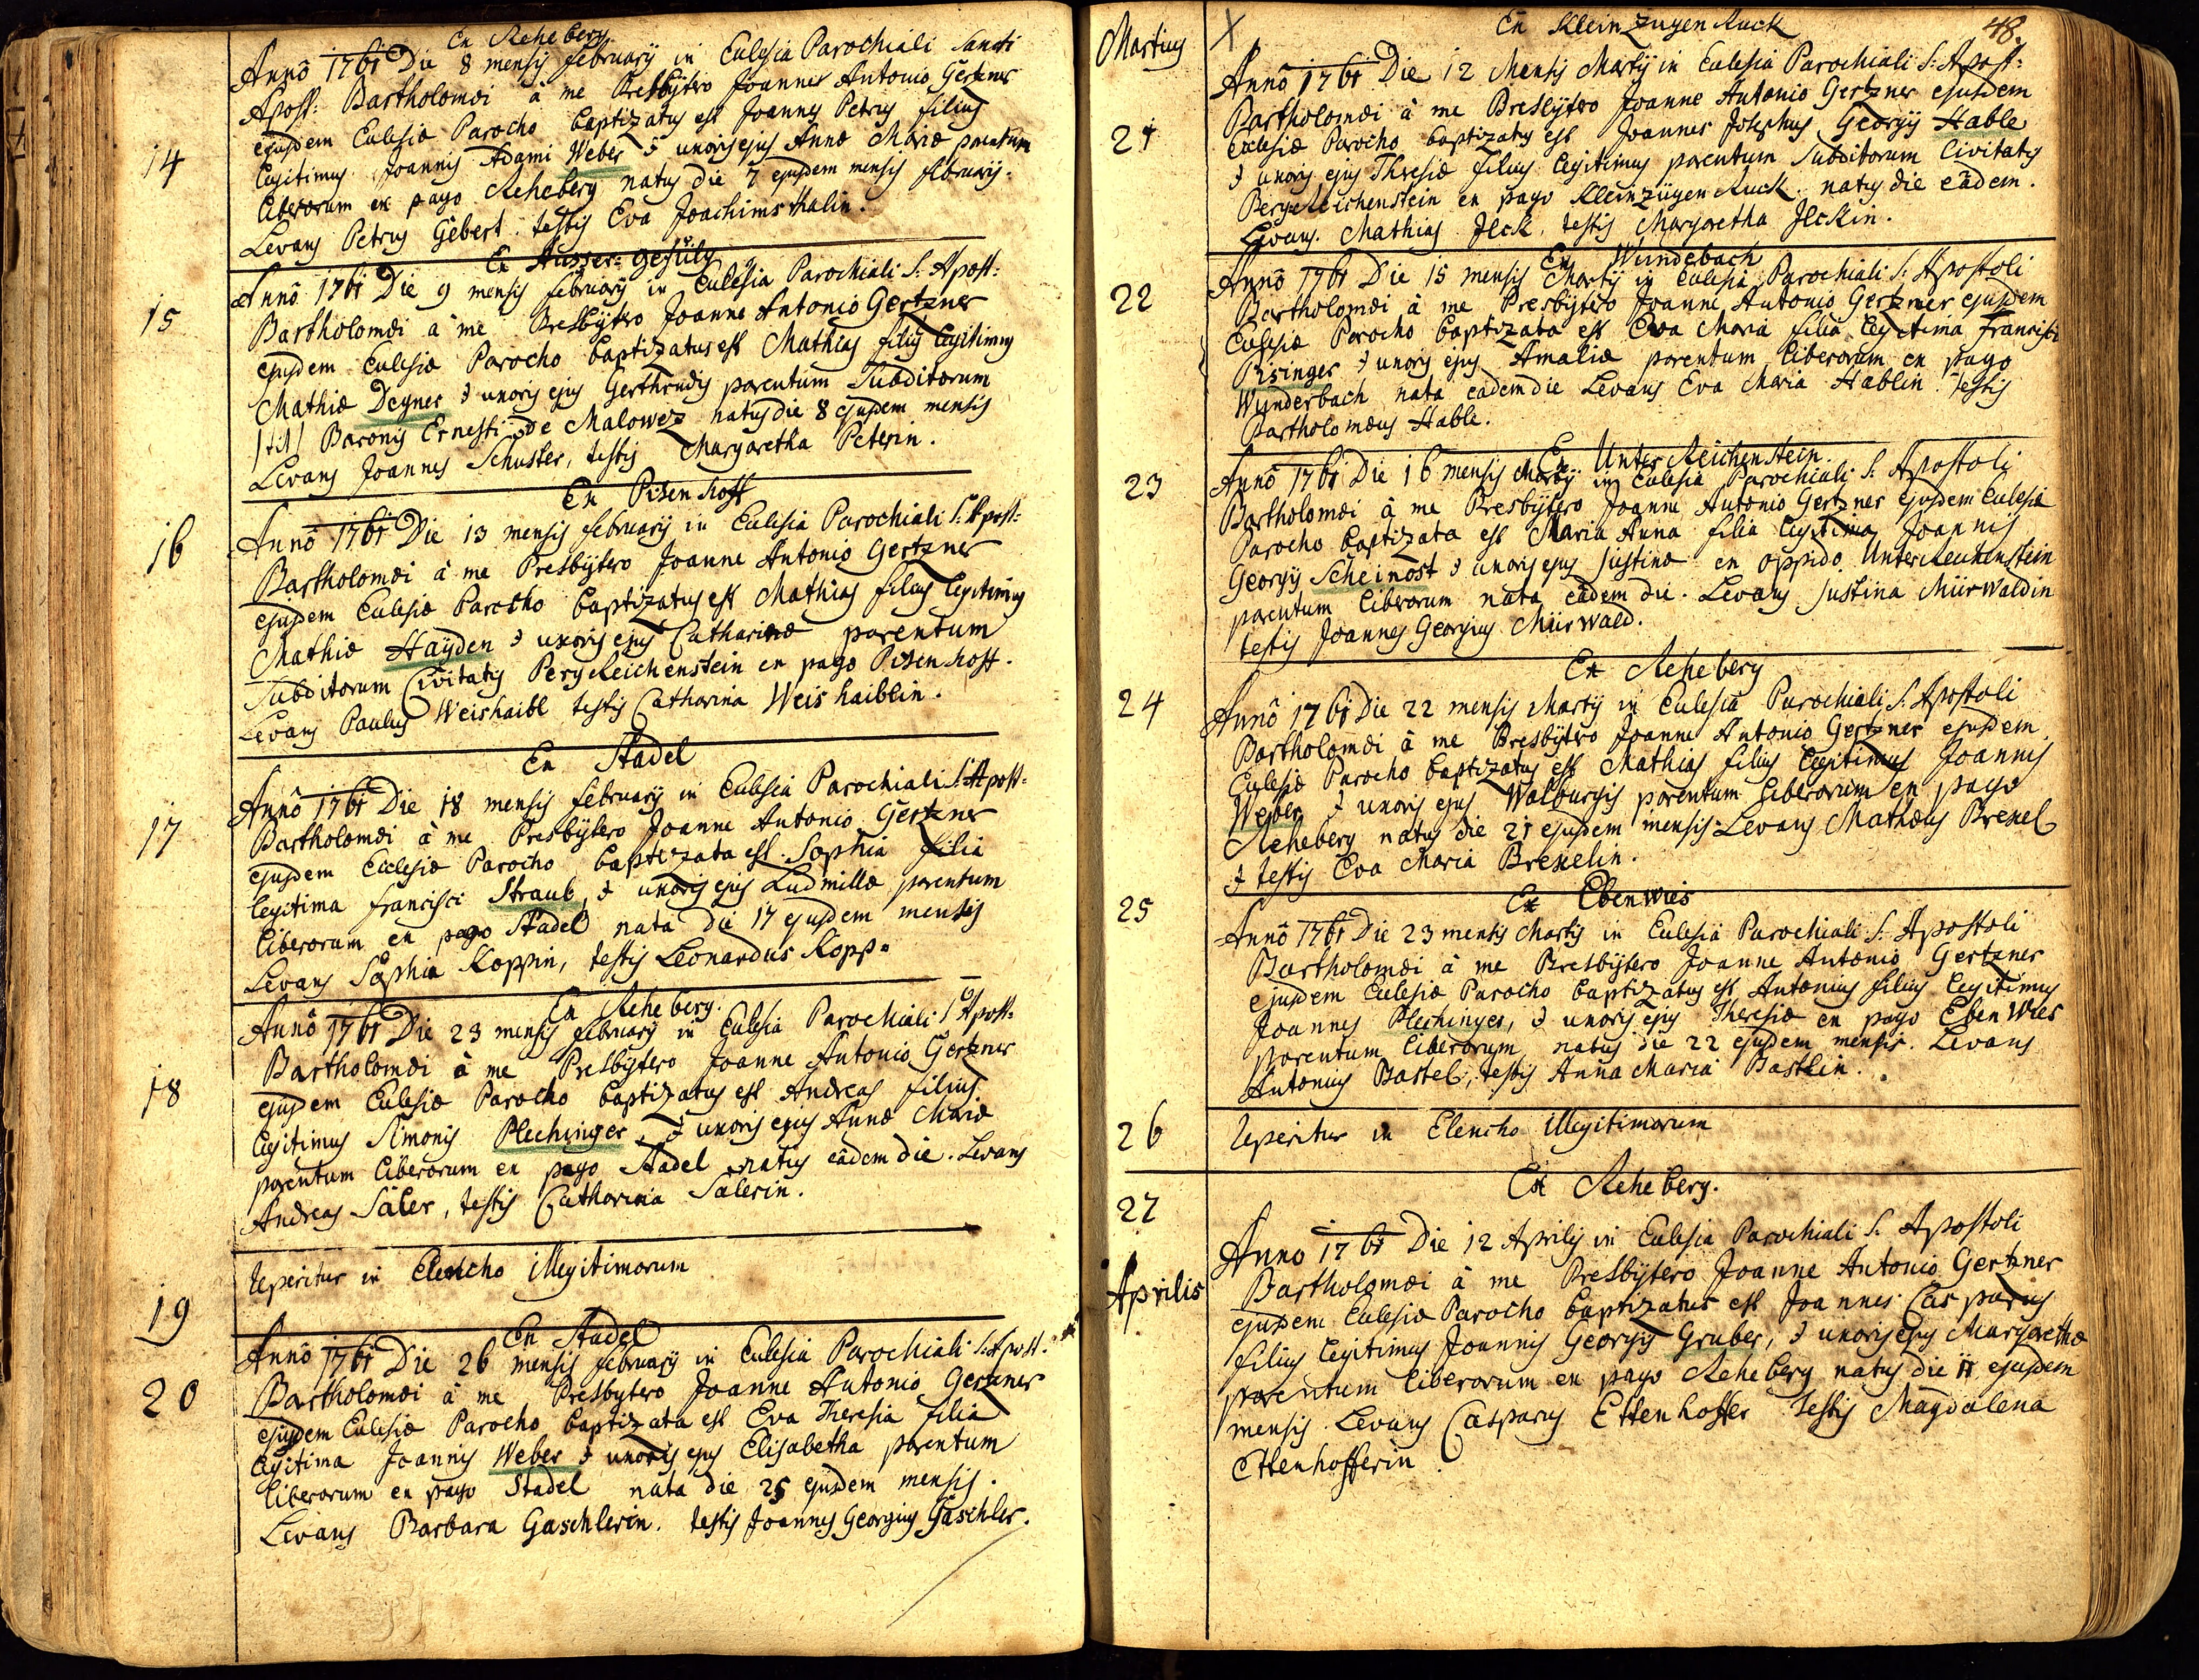 Ex Reheberg
Annô 1761 Die 8 mensis februarij in Ecclesia Parochiali Sancti
Apost: Bartholomæi à me Presbÿtero Joanne Antonio Gertzner
ejusdem Ecclesiæ Parocho baptizatus est Joannes Petrus filius
14
legitimus Joannis Adami Weber & uxoris ejus Annæ Mariæ parentum
liberorum ex pago Reheberg natus die 7 ejusdem mensis februarij.
Levans Petrus Gebert testis Eva Joachimsthalin.
Ex Ausser-gefüld
15
Annô 1761 Die 9 mensis februarij in Ecclesia Parochiali S: Apost:
Bartholomæi à me Presbÿtero Joanne Antonio Gertzner
ejusdem Ecclesiæ Parocho baptizatus est Mathias filius legitimus
Mathiæ Degner & uxoris ejus Gerthrudis parentum Subditorum
/tit/ Baronis Ernesti de Malowez natus die 8 ejusdem mensis
Levans Joannes Schuster, testis Margaretha Peterin.
Ex Pisenhoff
16
Annô 1761 Die 13 mensis februarij in Ecclesia Parochiali S: Apost:
Bartholomæi à me Presbÿtero Joanne Antonio Gertzner
ejusdem Ecclesiæ Parocho baptizatus est Mathias filius legitimus
Mathiæ Haÿden & uxoris ejus Catharinæ parentum
Subditorum Civitatis PergReichenstein ex pago Pisenhoff.
Levans Paulus Weishaibl testis Catharina Weishaiblin.
Ex Stadel
17
Annô 1761 Die 18 mensis februarij in Ecclesia Parochiali S: Apost:
Bartholomæi à me Presbÿtero Joanne Antonio Gertzner
ejusdem Ecclesiæ Parocho baptizata est Sophia filia
legitima francisci Straub, & uxoris ejus Ludmillæ parentum
liberorum ex pago Stadel nata die 17 ejusdem mensis
Levans Sophia Koppin, testis Leonardus Kopp.
Ex Reheberg.
18
Annô 1761 Die 23 mensis februarij in Ecclesia Parochiali S: Apost:
Bartholomæi à me Presbÿtero Joanne Antonio Gertzner
ejusdem Ecclesiæ Parocho baptizatus est Andreas filius
legitimus Simonis Plechinger, & uxoris ejus Annæ Mariæ
parentum liberorum ex pago Stadel natus eâdem die. Levans
Andreas Saler, testis Catharina Salerin.
19
reperitur in Elencho illegitimorum
Ex Stadel
20
Annô 1761 Die 26 mensis februarij in Ecclesia Parochiali S: Apost.
Bartholomæi à me Presbytero Joanne Antonio Gertzner
ejusdem Ecclesiæ Parocho baptizata est Eva Theresia filia
legitima Joannis Weber & uxoris ejus Elisabetha parentum
liberorum ex pago Stadel nata die 25 ejusdem mensis.
Levans Barbara Gaschlerin. testis Joannes Georgius Gaschler.
Martius
X
48.
Ex KleinZugenRuck
21
Annô 1761 Die 12 Mensis Martij in Ecclesia Parochiali S: Apost:
Bartholomæi à me Presbÿtero Joanne Antonio Gertzner ejusdem
Ecclesiæ Parocho baptizatus est Joannes Josephus Georgij Hable
& uxoris ejus Theresiæ filius legitimus parentum Subditorum Civitatis
BergReichenstein ex pago KleinzügenRuck. natus die eâdem.
Levans. Mathias Jlck, testis Margaretha Jlckin.
Ex Wundebach
22
Annô 1761 Die 15 mensis Martij in Ecclesia Parochiali S: Apostoli
Bartholomæi à me Presbÿtero Joanne Antonio Gertzner ejusdem
Ecclesiæ Parocho baptizata est Eva Maria filia legitima francisci
Pisinger & uxoris ejus Amaliæ parentum liberorum ex pago
Wunderbach nata eadem die Levans Eva Maria Hablin testis
Bartholomæus Hable.
Ex Unter Reichenstein.
23
Annô 1761 Die 16 mensis Martij in Ecclesia Parochiali S: Apostoli
Bartholomæi à me Presbÿtero Joanne Antonio Gertzner ejusdem Ecclesiæ
Parocho baptizata est Maria Anna filia legitima Joannis
Georgij Scheinost & uxoris ejus Justinæ ex oppido UnterReichenstein
parentum liberorum nata eâdem die. Levans Justina Mürwaldin
testis Joannes Georgius Mürwald.
Ex Reheberg
24
Annô 1761 Die 22 mensis Martij in Ecclesia Parochiali S: Apostoli
Bartholomæi à me Presbÿtero Joanne Antonio Gertzner ejusdem
Ecclesiæ Parocho baptizatus est Mathias filius legitimus Joannis
Weber & uxoris ejus Walburgis parentum liberorum ex pago
Reheberg natus die 21 ejusdem mensis Levans Mathæus Brexel
& testis Eva Maria Brexelin.
Ex Ebenwies
25
Annô 1761 Die 23 mensis Martij in Ecclesia Parochiali S. Apostoli
Bartholomæi à me Presbÿtero Joanne Antonio Gertzner
ejusdem Ecclesiæ Parocho baptizatus est Antonius filius legitimus
Joannes Plechinger, & uxoris ejus Theresiæ ex pago EbenWies
parentum liberorum natus die 22 ejusdem mensis. Levans
Antonius Bastel, testis Anna Maria Bastlin.
26
reperitur in Elencho illegitimorum
Ex Reheberg.
27
Aprilis
Anno 1761 Die 12 Aprilis in Ecclesia Parochiali S. Apostoli
Bartholomæi à me Presbÿtero Joanne Antonio Gertzner
ejusdem Ecclesiæ Parocho baptizatus est Joannes Casparus
filius legitimus Joannis Georgij Gruber, & uxoris ejus Margarethæ
parentum liberorum ex pago Reheberg natus die 11 ejusdem
mensis. Levans Casparus Ettenhoffer testis Magdalena
Ettenhofferin